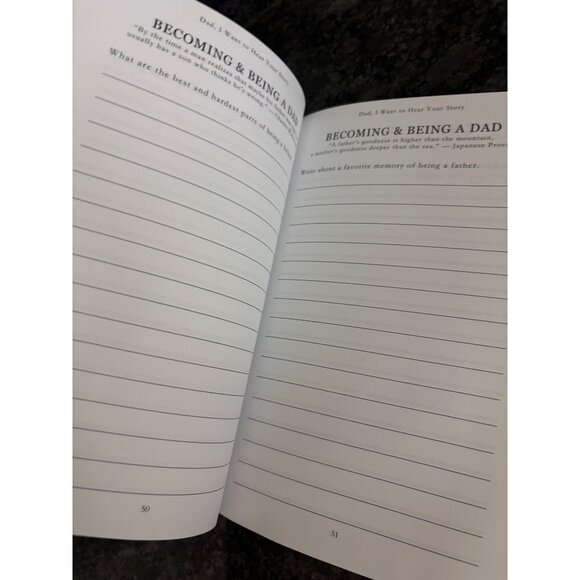 Dad, I Want to Hear Your Story
BECOMING & BEING A DAD
"By the time a man realizes that maybe his father was
usually has a son who thinks he's wrong." — Charles
What are the best and hardest parts of being a
50
Dad, I Want to Hear Your Story
BECOMING & BEING A DAD
"A father's goodness is higher than the mountain,
a mother's goodness deeper than the sea." — Japanese
Write about a favorite memory of being a father.
51